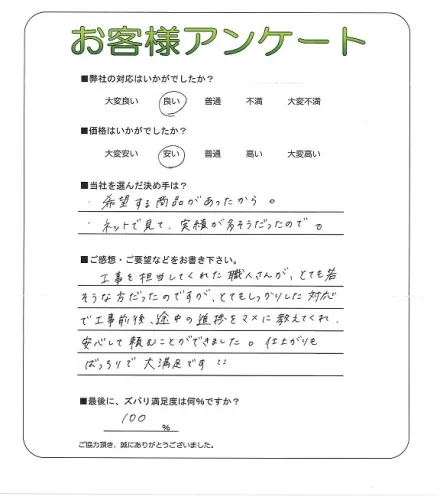 お客様アンケート
■弊社の対応はいかがでしたか？
大変良い 良い 普通 不満 大変不満
■価格はいかがでしたか？
大変安い 安い 普通 高い 大変高い
■当社を選んだ決め手は？
・希望する商品があったから。
・ネットで見て、実績が多そうだったので。
■ご感想・ご要望などをお書き下さい。
工事を担当してくれた職人さんが、とても若
そうな方だったのですが、とてもしっかりした対応
で工事前後、途中の進捗をマメに教えてくれ、
安心して頼むことができました。仕上がりも
ばっちりで大満足です
■最後に、ズバリ満足度は何%ですか？
100
%
ご協力頂き、誠にありがとうございました。